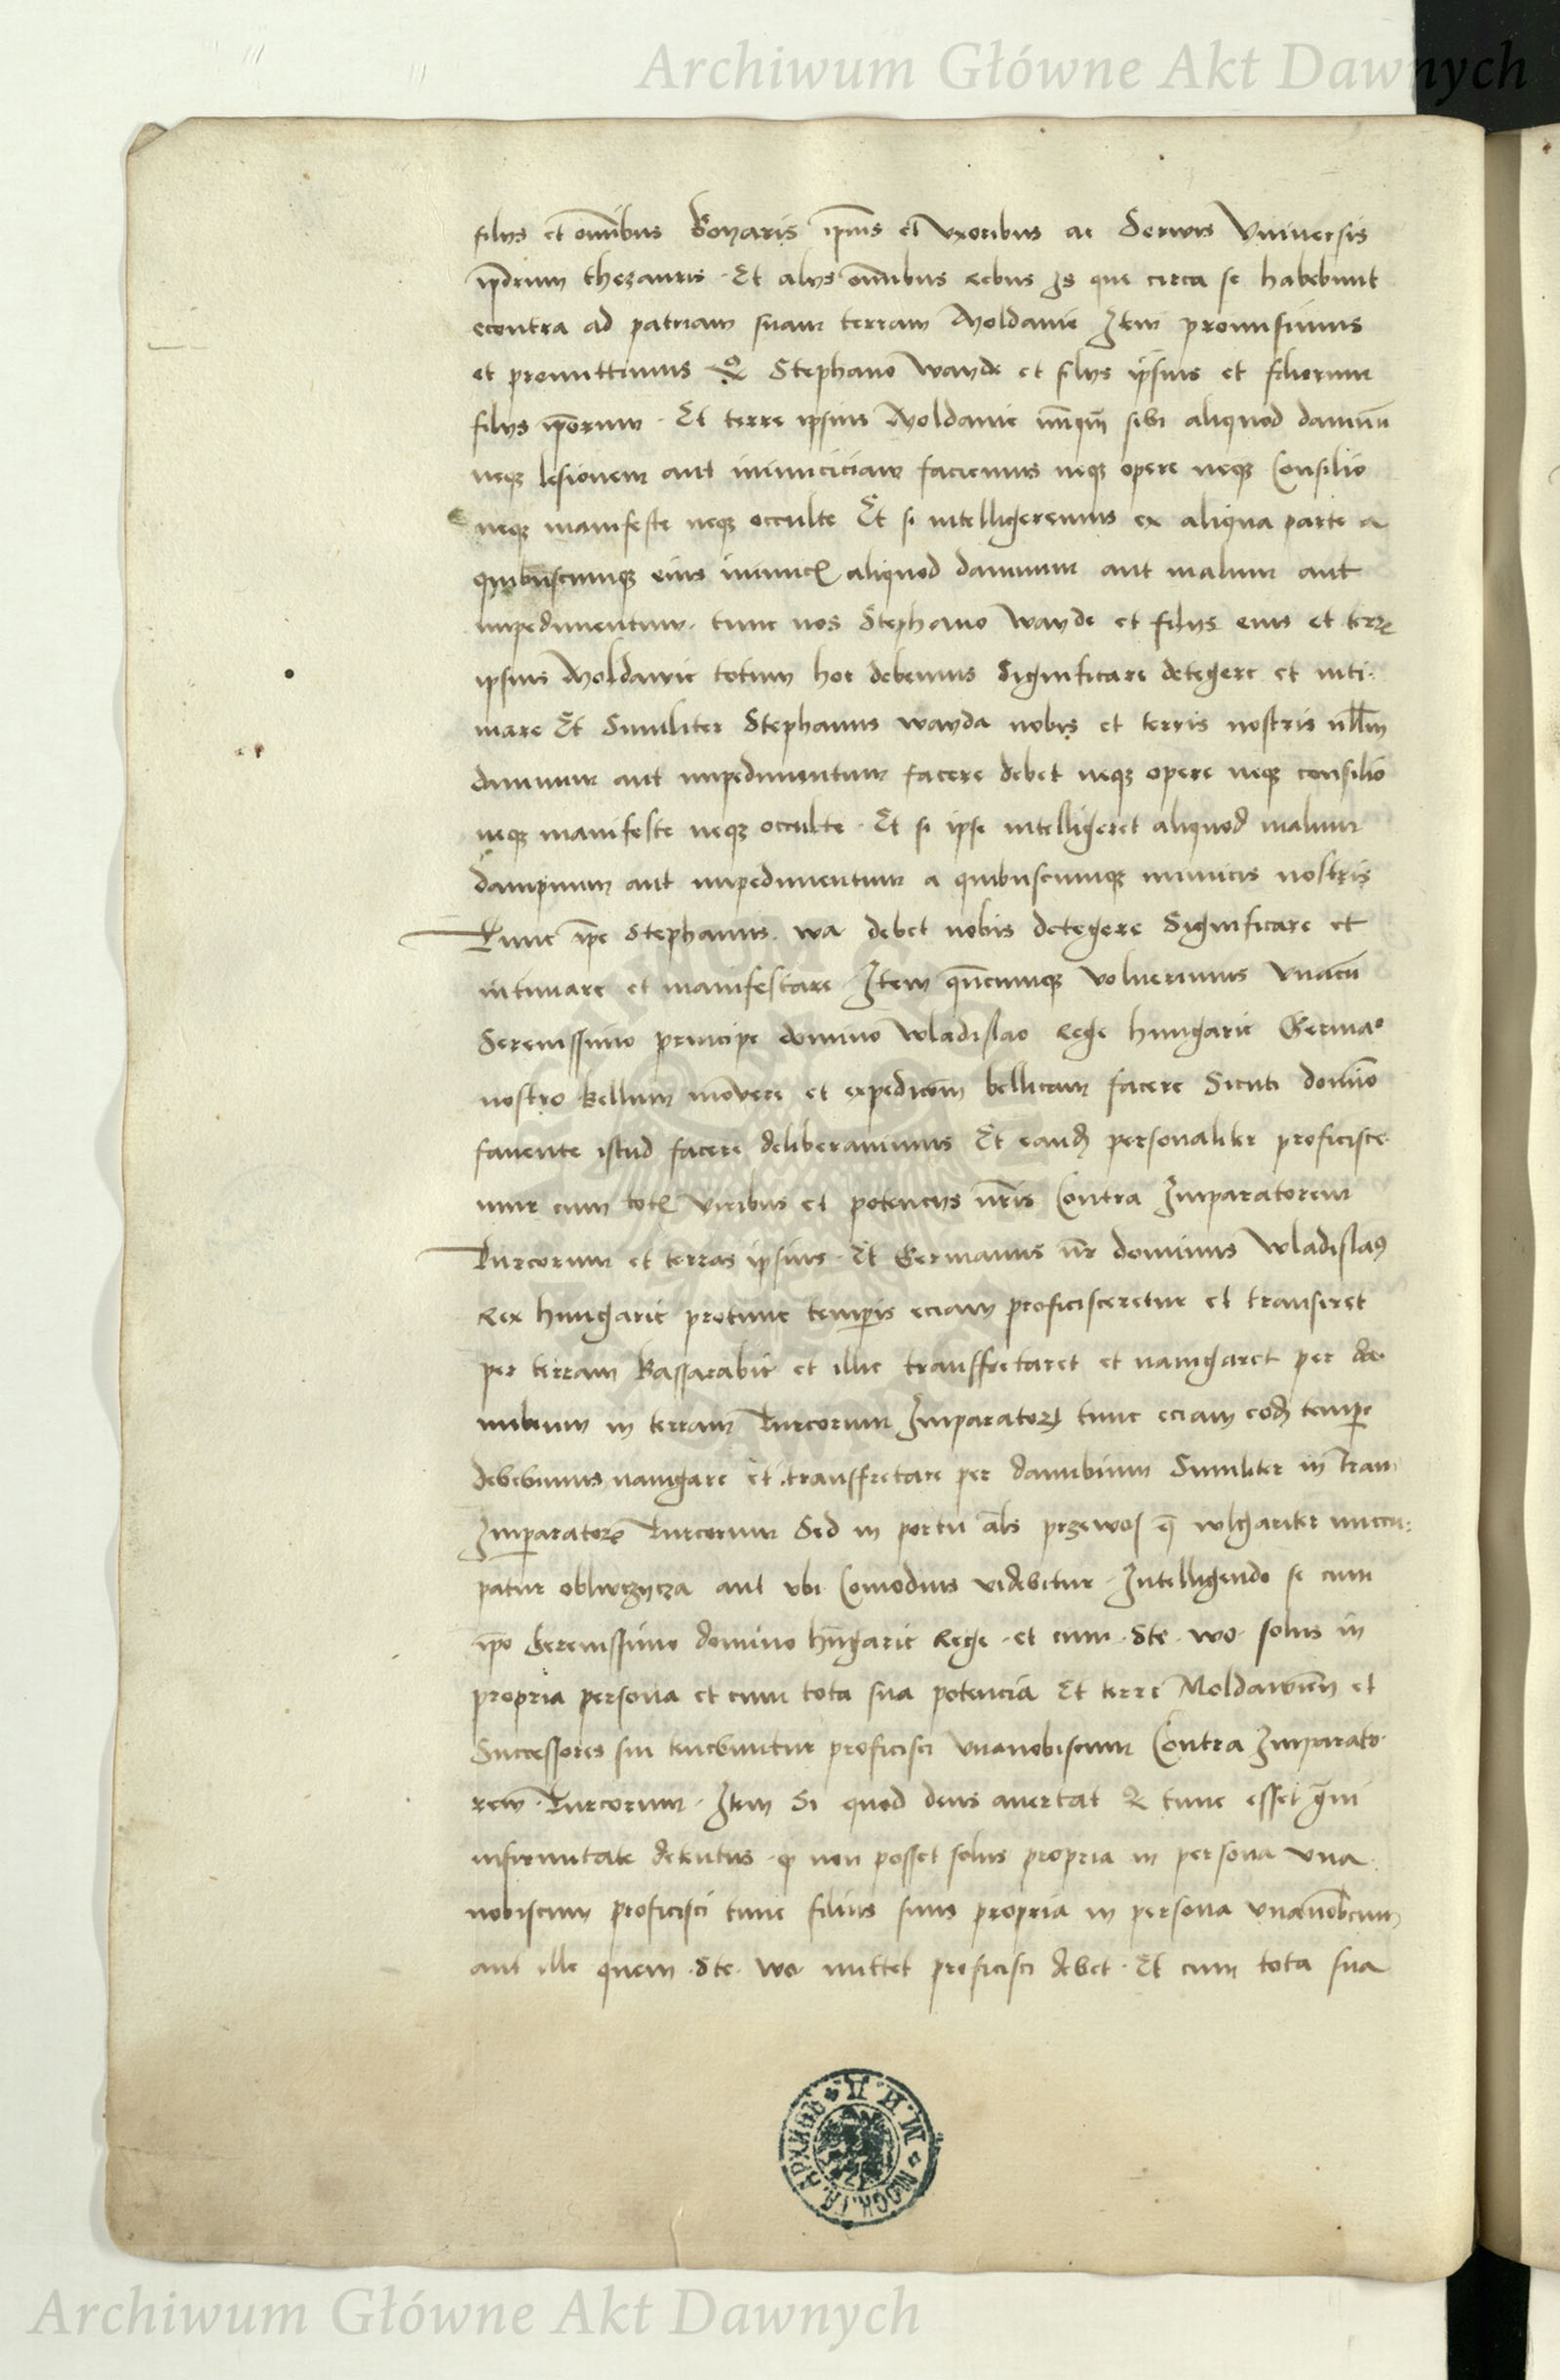 Archiwum Główne Akt Dawnych
filys et omnibus Boyaris ipsius et Vxoribus ac Servis Vniversis
ipsorum thezauris Et alys omnibus rebus Is que circa se habebunt
econtra ad patriam suam terram Moldavie Item promisimus
et promittimus Stephano wayde et filys ipsius et filiorum
filys ipsorum Et terre ipsius Moldavie nunquam sibi aliquod damnum
neque lesionem aut inimiciciam faciemus neque opere neque Consilio
neque manifeste neque occulte Et si intelligeremus ex aliqua parte a
quibuscumque eius inimicis aliquod damnum aut malum aut
impedimentum tunc nos Stephano wayde et filys eius et terre
ipsius Moldavie totum hoc debemus Significare detegere et inti:
mare Et Similiter Stephanus wayda nobis et terris nostris nullum
damnum aut impedimentum facere debet neque opere neque consilio
neque manifeste neque occulte Et si ipse intelligeret aliquod malum
dampnum aut impedimentum a quibuscumque inimicis nostris
Tunc ipse Stephanus wa debet nobis detegere Significare et
intimare et manifestare Item quandocumque voluerimus vnacum
Serenissimo principe domino Wladislao Rege hungarie Germano
nostro bellum movere et expedicionem bellicam facere Sicuti domino
favente istud facere deliberavimus Et eandem personaliter proficisce
mur cum totis viribus et potencys nostris Contra Imparatorem
Turcorum et terras ipsius Et Germanus noster dominus Wladislaus
Rex hungarie protunc temporis eciam proficisceretur et transiret
per terram Bassarabie et illic transfretaret et navigaret per da
nubium in terram Turcorum Imparatoris tunc eciam eodem tempore
debebimus navigare et transfretare per danubium Similiter in terram
Imparatoris Turcorum Sed in portu alias przewos que wlgariter nuccu:
patur obluczycza aut vbi Comodius videbitur Intelligendo se cum
ipso Serenissimo domino hungarie Rege et cum Ste wo solus in
propria persona et cum tota sua potencia Et terre Moldawien et
Successores sui tenebuntur proficisci vnanobiscum Contra Imparato
rem Turcorum Item Si quod deus avertat et tunc esset gravi
infirmitate detentus quod non posset solus propria in persona vna
nobiscum proficisci tunc filius suus propria in persona vnanobiscum
aut ille quem Ste wo mittet proficisci debet Et cum tota sua
Archiwum Główne Akt Dawnych